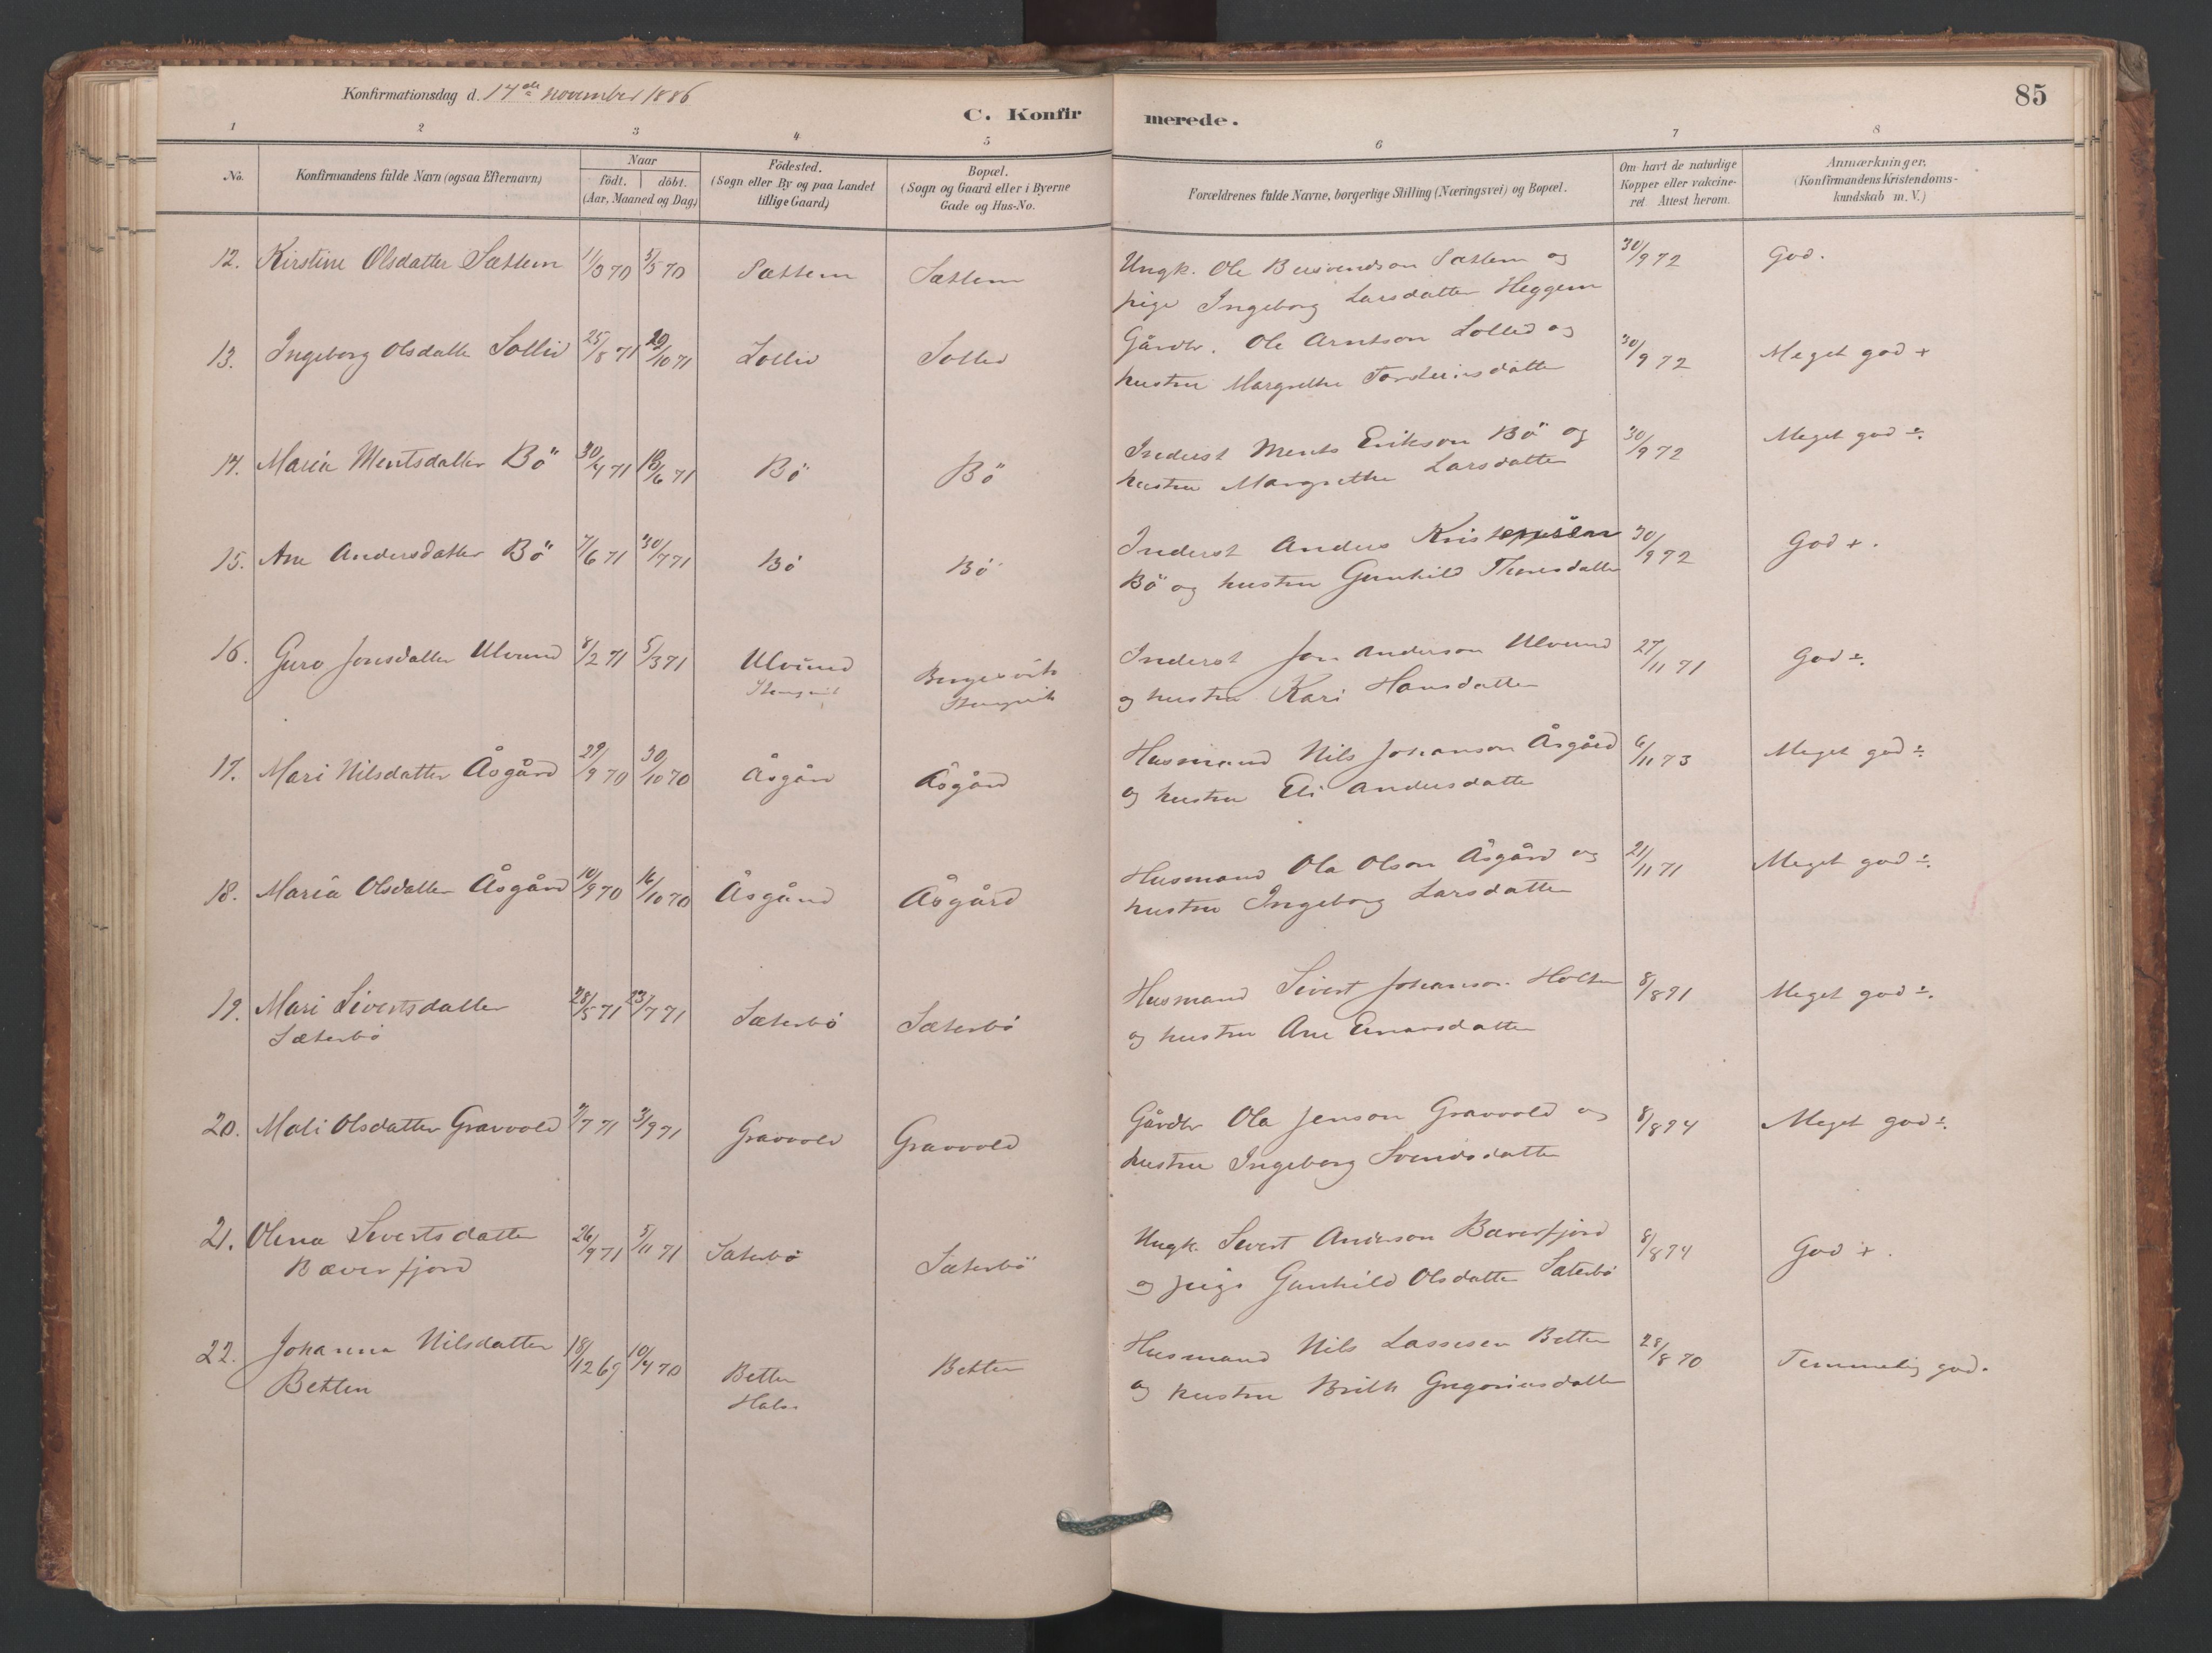 Konfirmationsdag d. 14de november 1886
C. Konfirmerede.
85
1 2 3 4 5 6 7 8
No.
Konfirmandens fulde Navn (ogsaa Efternavn)
Naar
födt. | döbt.
(Aar, Maaned og Dag)
Födested.
(Sogn eller By og paa Landet
tillige Gaard)
Bopæl.
(Sogn og Gaard eller i Byerne
Gade og Hus-No.
Forældrenes fulde Navne, borgerlige Stilling (Næringsvei) og Bopæl.
Om havt de naturlige
Kopper eller vakcine-
ret Attest herom.
Anmærkninger.
(Konfirmandens Kristendoms-
kundskab m. V.)
12. Kirstine Olsdatter Sættem 11/3 70 5/5 70 Sættem Sættem Ungk. Ole Sættem og 30/9 72 God.
pige Ingeborg Larsdatter Heggem
13. Ingeborg Olsdatte Sollid 25/8 71 29/10 71 Sollid Sollid Gårdbr. Ole Arntson Sollid og 30/9 72 Meget god +
hustru Margrethe
14. Maria Mentsdatter Bö 30/4 71 18/6 71 Bö Bö Inderst Ments Erikson Bö og 30/9 72 Meget god ÷.
hustru Margrethe Larsdatter
15. Ane Andersdatter Bö 7/6 71 30/7 71 Bö Bö Inderst Anders 30/9 72 God +.
Bö og hustru Gunhild
16. Guro Jonsdatter Ulvund 8/2 71 5/3 71 Ulvund Inderst Jon Anderson Ulvund 27/11 71 God ÷.
og hustru Kari Hansdatter
17. Mari Nilsdatter Åsgård 29/9 70 30/10 70 Åsgård Åsgård Husmand Nils Johanson Åsgård 6/11 73 Meget god ÷
og hustru Eli Andersdatter
18. Maria Olsdatter Åsgård 10/9 70 16/10 70 Åsgård Åsgård Husmand Ola Olson Åsgård og 21/11 71 Meget god ÷.
hustru Ingeborg Larsdatter
19. Mari Sivertsdatter 28/5 71 23/7 71 Sæterbö Sæterbö Husmand Sivert Johanson Holten Meget god ÷.
Sæterbö
og hustru Ane Einarsdatter
20. Mali Olsdatter Gravvold 2/7 71 3/9 71 Gravvold Gravvold Gårdbr Ola Jenson Gravvold og 8/8 74 Meget god ÷.
hustru Ingeborg Svendsdatter
21. Olena Sivertsdatter 26/9 71 5/11 71 Sæterbö Sæterbö Ungk. Sivert Anderson Bæverfjord 8/8 74 God +.
Bæverfjord
og pige Gunhild Olsdatter Sæterbö
22. Johanna Nilsdatter 18/12 69 10/4 70 Betten Betten Husmand Nils Lassesen Betten 28/8 70 Temmelig god.
Betten
Halse
og hustru Brith Gregoriusdatter